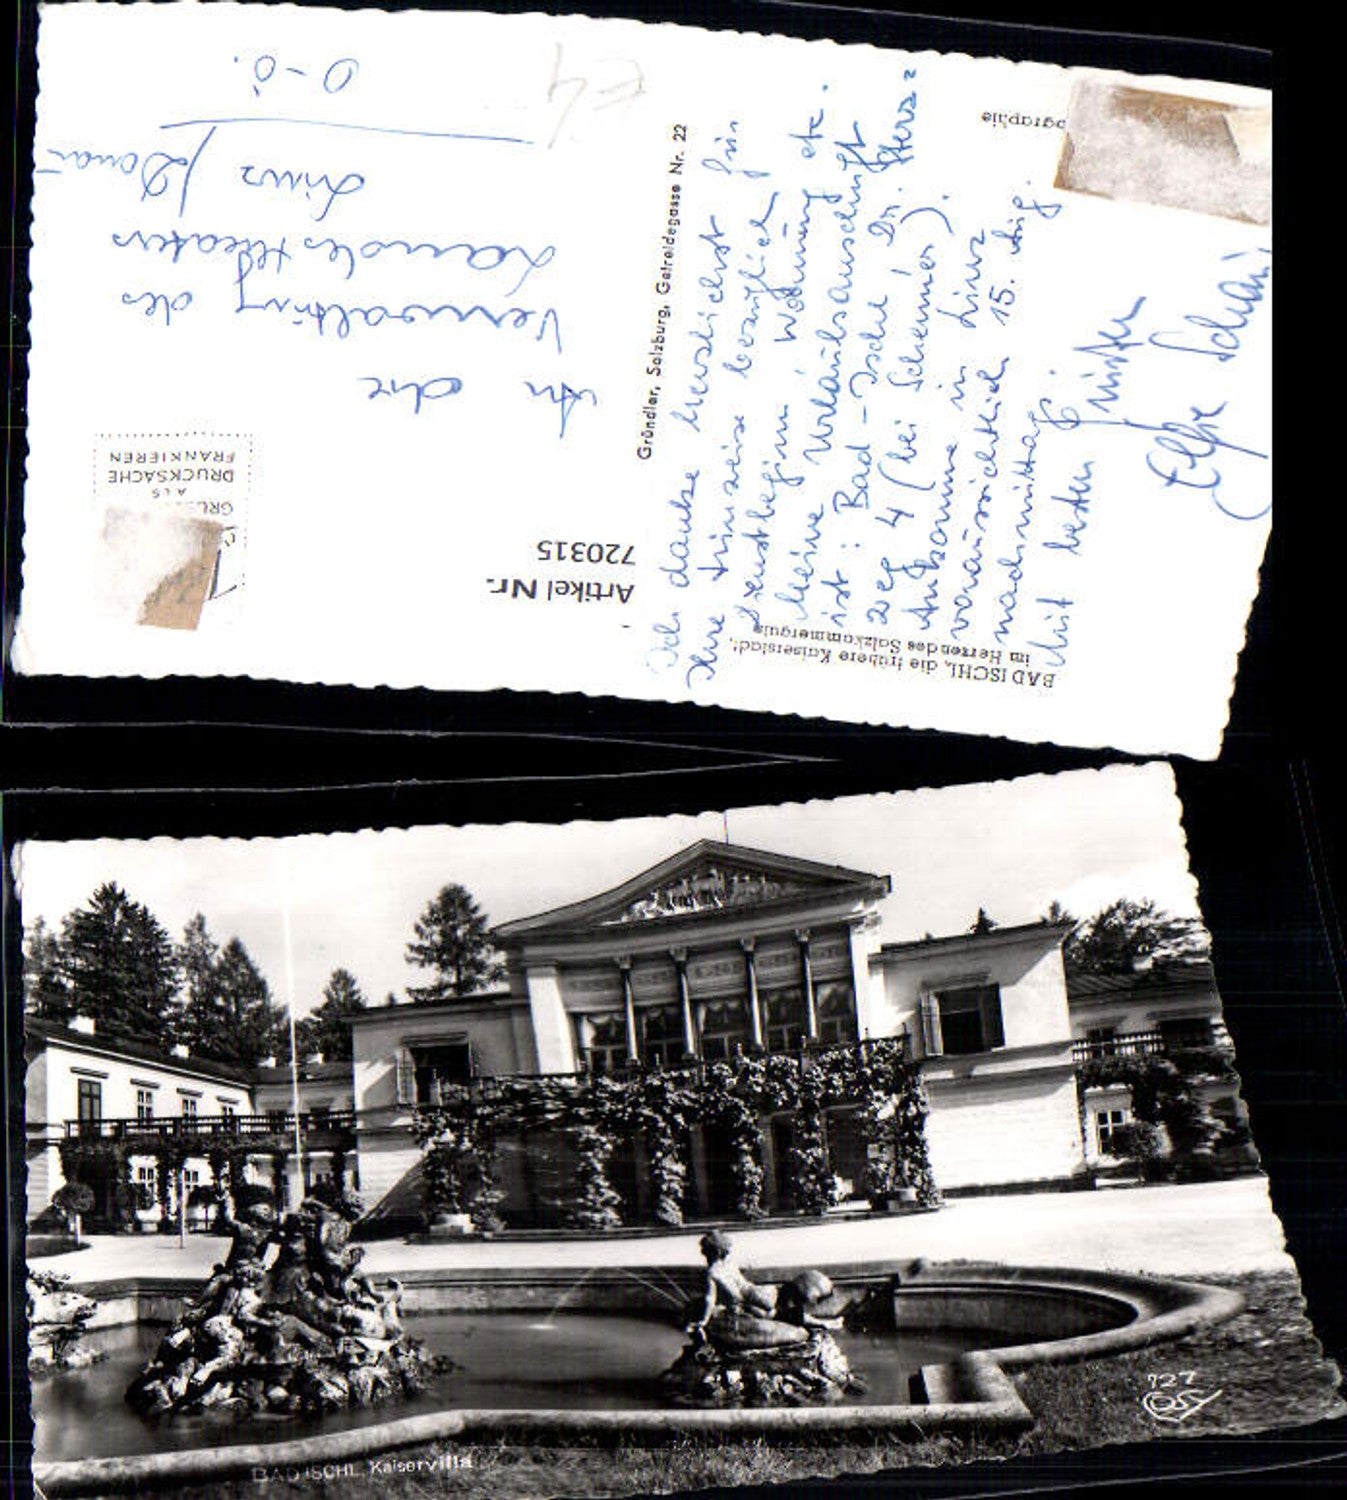 BAD ISCHL, die frühere Kaiserstadt,
im Herzen des Salzkammerguts
Artikel Nr.
720315
Gründler, Salzburg, Getreidegasse Nr. 22
ographie
ALS
DRUCKSACHE
FRANKIEREN
An die
Verwaltung des
Landestheaters
Linz /Donau
O-Ö.
Ich danke herzlichst für
Ihre Hinweise bezüglich
Dienstbeginn, Wohnung etc.
Meine Urlaubsanschrift
ist: Bad-Ischl, Dr.
weg 4 (bei Schemmer).
Ankomme in Linz
voraussichtlich 15. Aug.
nachmittags.
Mit besten Grüßen
Elfie
E4
727
BAD ISCHL, Kaiservilla